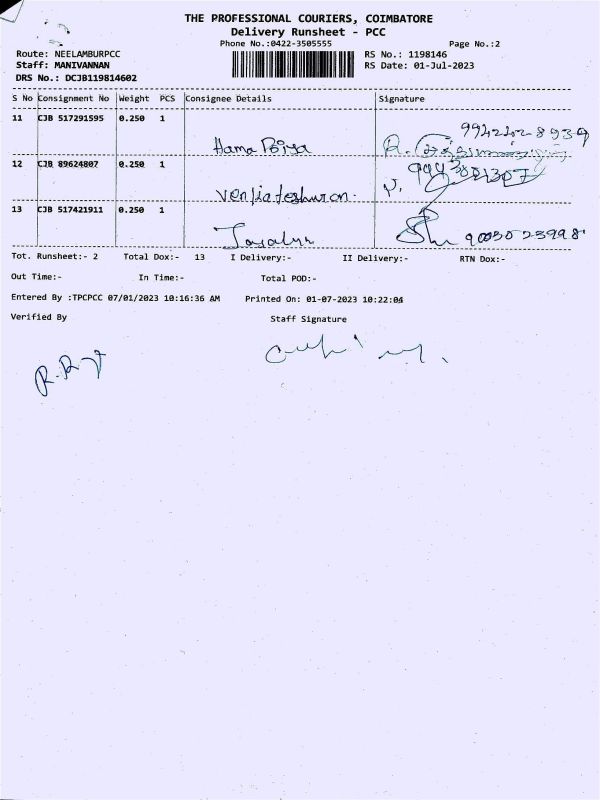 THE PROFESSIONAL COURIERS, COIMBATORE
Delivery Runsheet - PCC
Phone No.:0422-3505555
Page No.:2
Route: NEELAMBURPCC
RS No.: 1198146
Staff: MANIVANNAN
RS Date: 01-Jul-2023
DRS No.: DCJB119814602
S No Consignment No Weight PCS Consignee Details Signature
11 CJB 517291595 0.250 1
Hama Priya R.
12 CJB 89624807 0.250 1
13 CJB 517421911 0.250 1
Tot. Runsheet:- 2 Total Dox:- 13 I Delivery:- II Delivery:- RTN Dox:-
Out Time:- In Time:- Total POD:-
Entered By :TPCPCC 07/01/2023 10:16:36 AM Printed On: 01-07-2023 10:22:04
Verified By Staff Signature